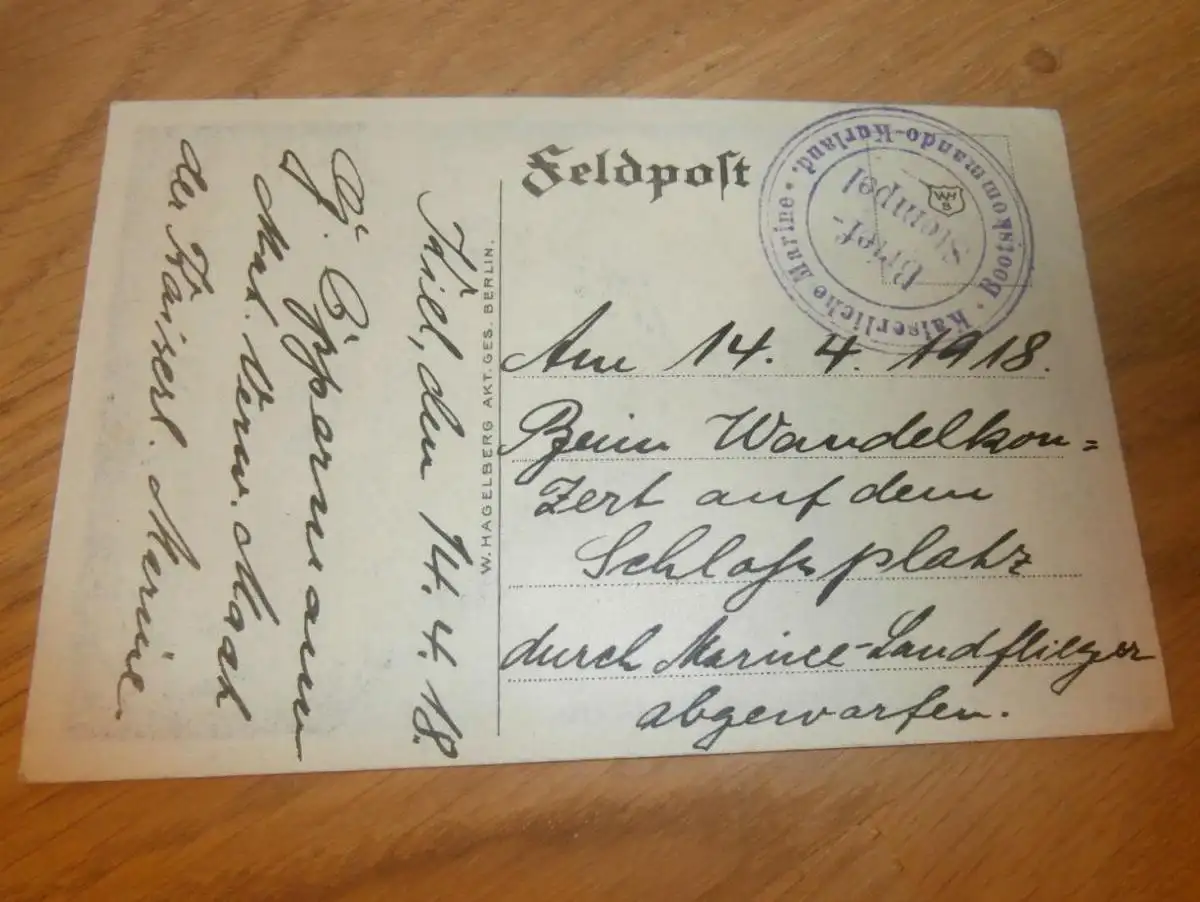 Feldpost
Kaiserliche Marine • Bootskommando-Kurland.
Brief-
Stempel
WH
B
Am 14. 4. 1918.
Beim Wandelkon=
zert auf dem
Schloßplatz
durch Marine-Landflieger
abgeworfen.
W. HAGELBERG AKT. GES. BERLIN.
Kiel, den 14. 4. 18.
Verw. Maat
der Kaiserl. Marine.